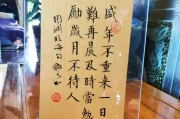 盛年不重來一日
難再晨及時當勉
勵歲月不待人